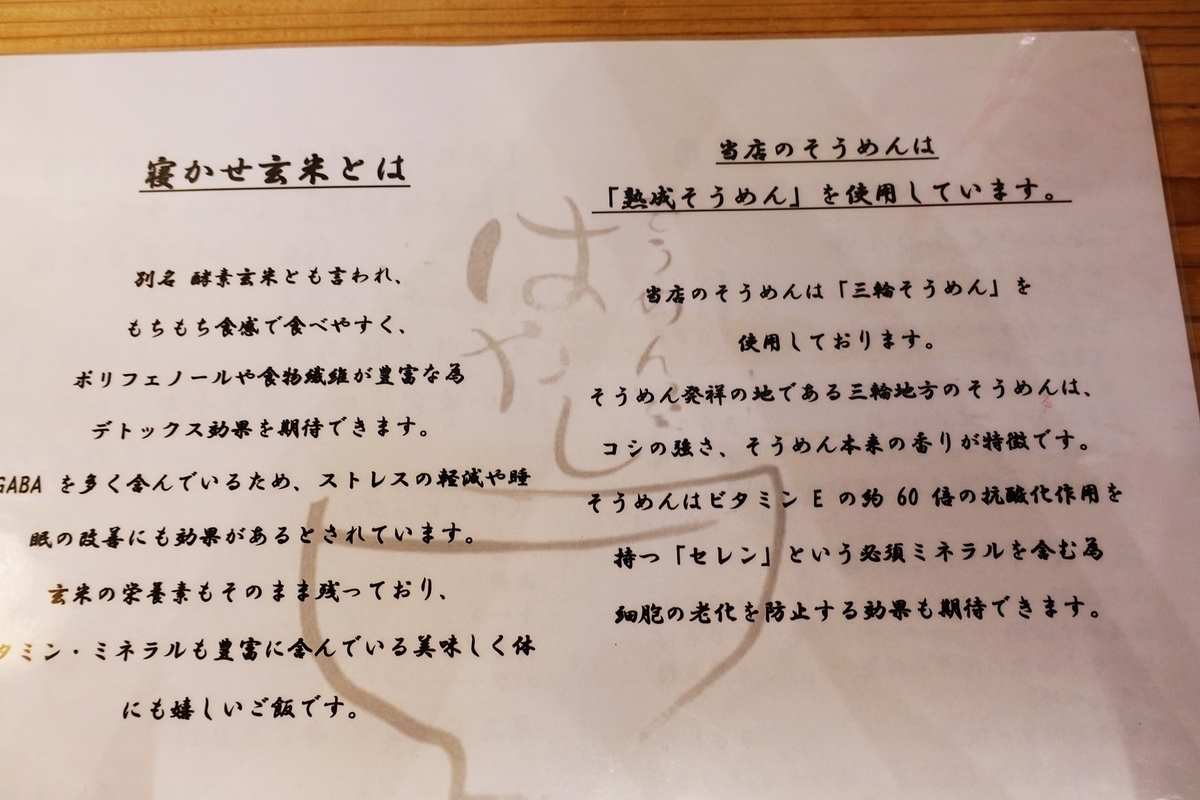 寝かせ玄米とは
別名 酵素玄米とも言われ、
もちもち食感で食べやすく、
ポリフェノールや食物繊維が豊富な為
デトックス効果を期待できます。
GABA を多く含んでいるため、ストレスの軽減や睡
眠の改善にも効果があるとされています。
玄米の栄養素もそのまま残っており、
タミン・ミネラルも豊富に含んでいる美味しく体
にも嬉しいご飯です。
当店のそうめんは
「熟成そうめん」を使用しています。
当店のそうめんは「三輪そうめん」を
使用しております。
そうめん発祥の地である三輪地方のそうめんは、
コシの強さ、そうめん本来の香りが特徴です。
そうめんはビタミン E の約 60 倍の抗酸化作用を
持つ「セレン」という必須ミネラルを含む為
細胞の老化を防止する効果も期待できます。
そうめん
はやし